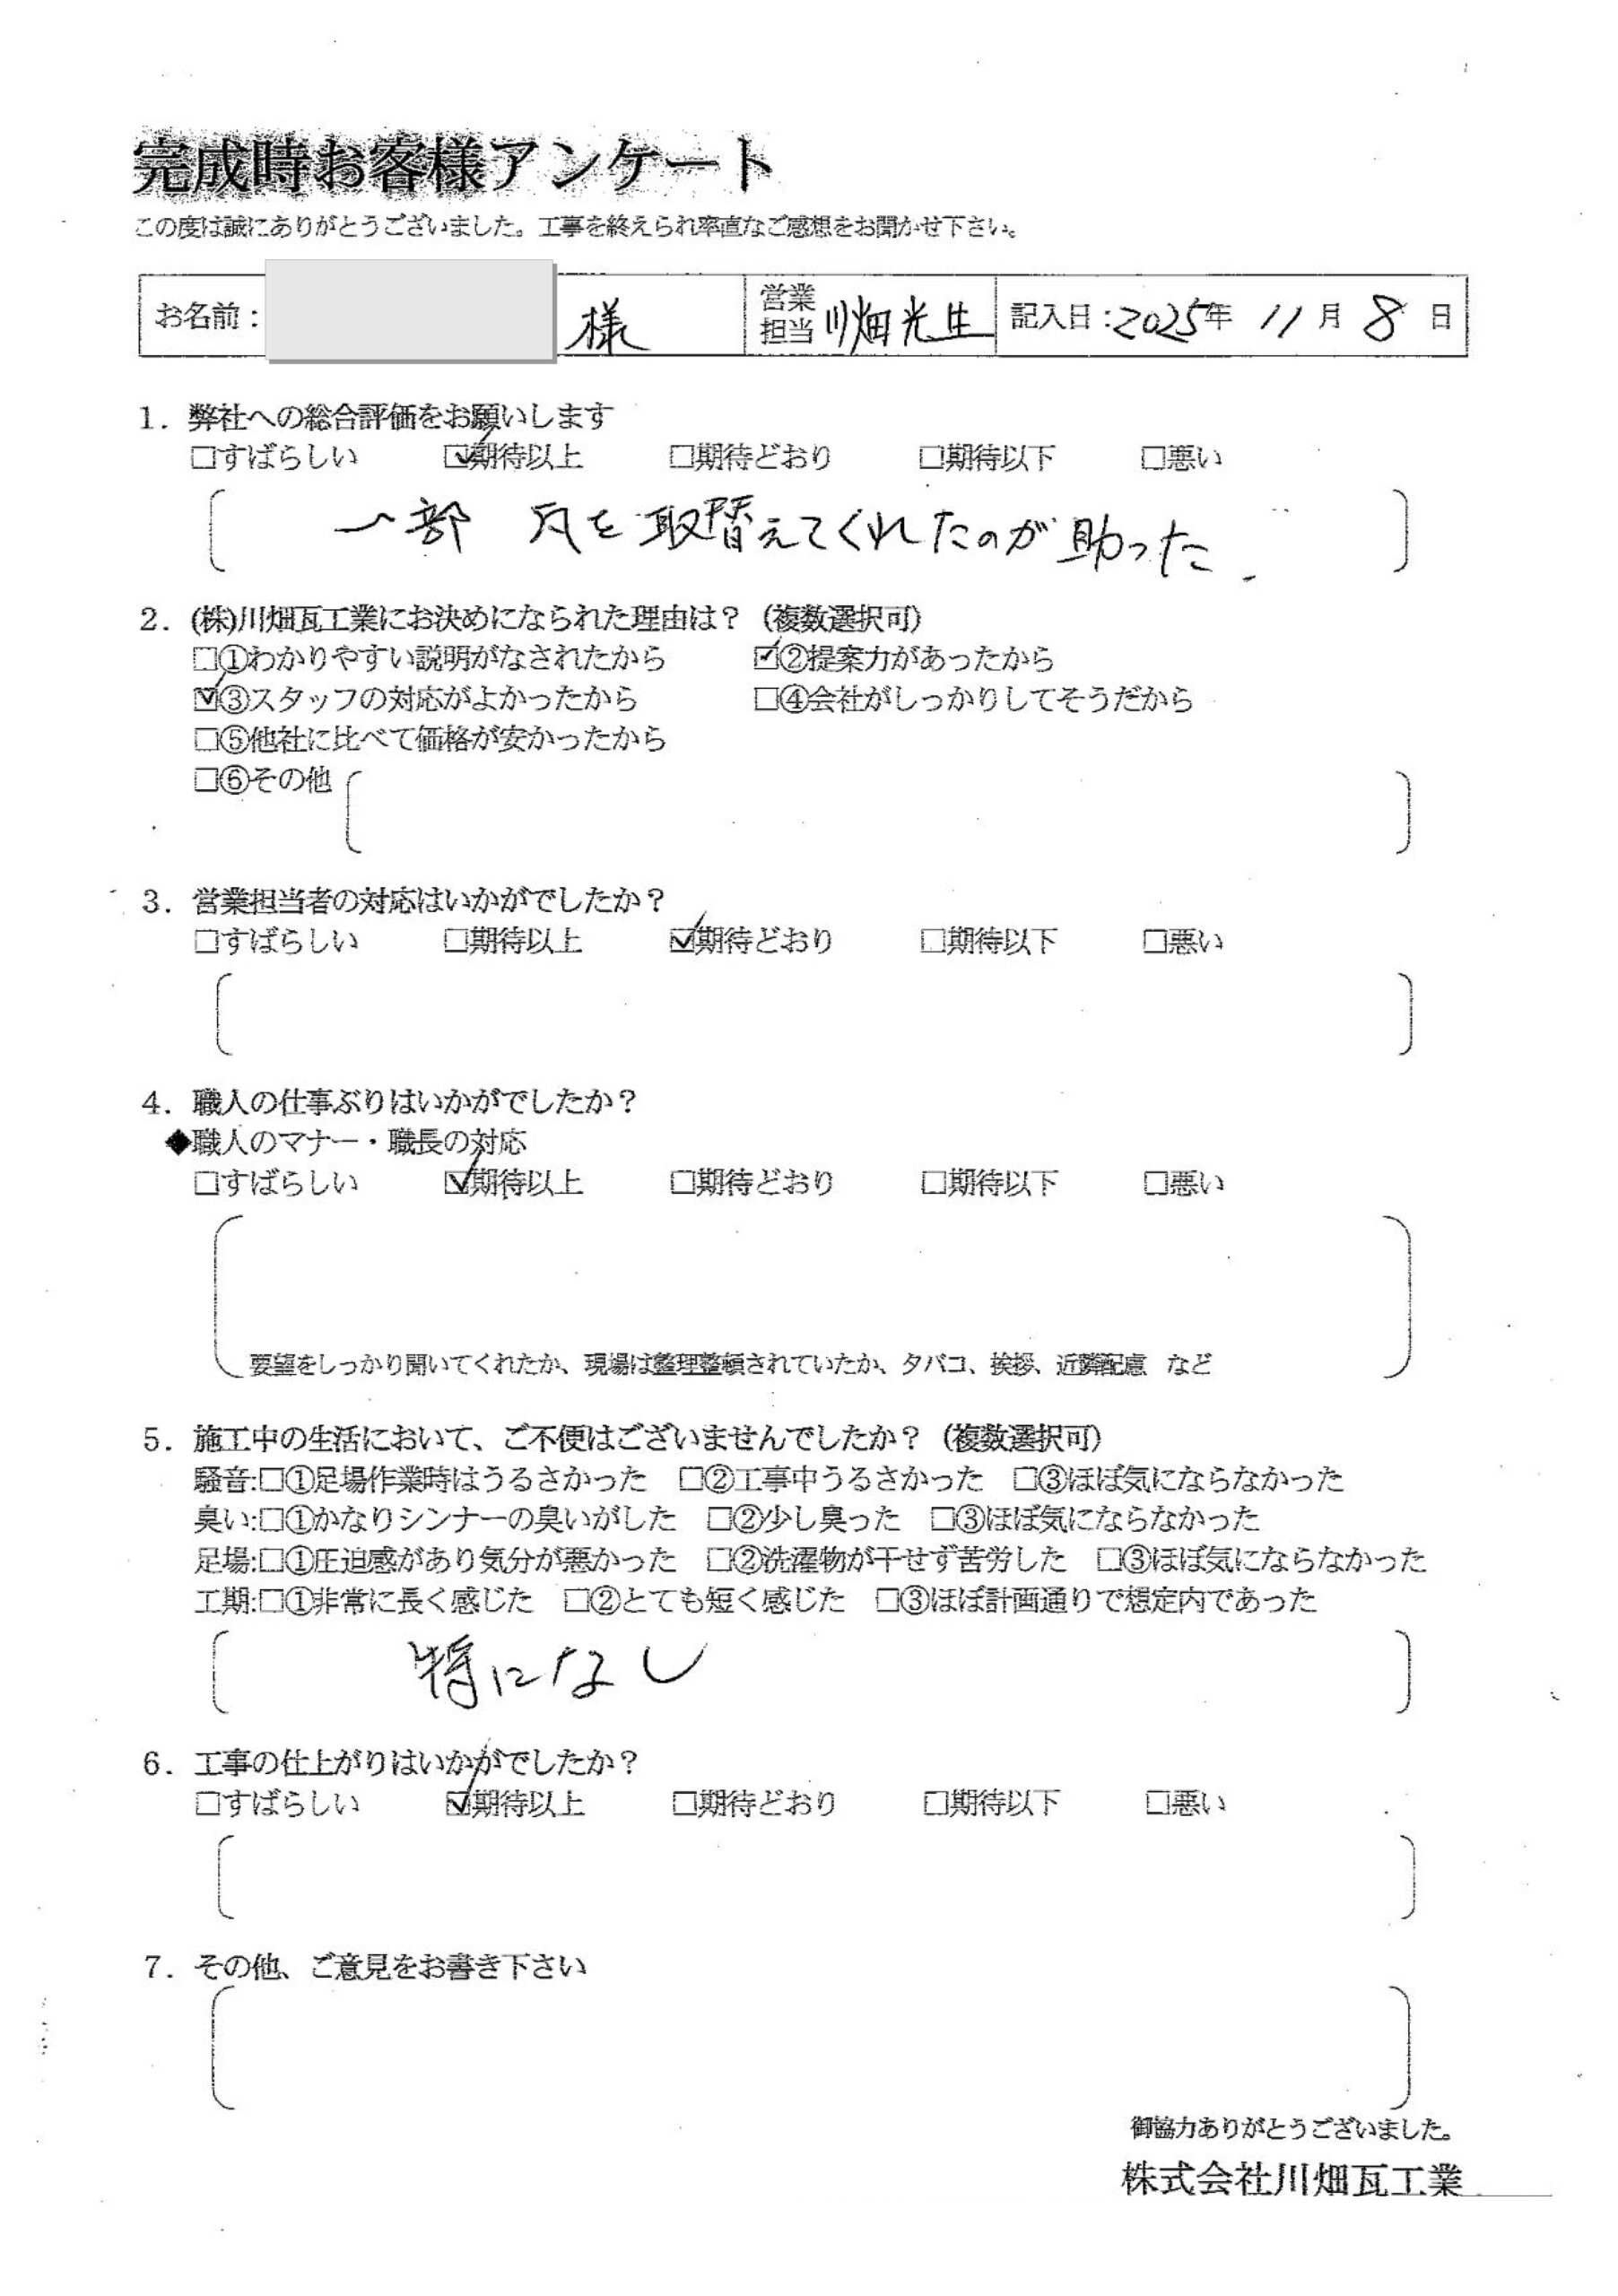 完成時お客様アンケート
この度は誠にありがとうございました。工事を終えられ率直なご感想をお聞かせ下さい。
お名前： 様 営業担当 川畑光生 記入日：2025年 11月 8日
1．弊社への総合評価をお願いします
□すばらしい ☑期待以上 □期待どおり □期待以下 □悪い
一部 瓦を取替えてくれたのが助った.
2．(株)川畑瓦工業にお決めになられた理由は？（複数選択可）
□①わかりやすい説明がなされたから ☑②提案力があったから
☑③スタッフの対応がよかったから □④会社がしっかりしてそうだから
□⑤他社に比べて価格が安かったから
□⑥その他
3．営業担当者の対応はいかがでしたか？
□すばらしい □期待以上 ☑期待どおり □期待以下 □悪い
4．職人の仕事ぶりはいかがでしたか？
◆職人のマナー・職長の対応
□すばらしい ☑期待以上 □期待どおり □期待以下 □悪い
要望をしっかり聞いてくれたか、現場は整理整頓されていたか、タバコ、挨拶、近隣配慮 など
5．施工中の生活において、ご不便はございませんでしたか？（複数選択可）
騒音:□①足場作業時はうるさかった □②工事中うるさかった □③ほぼ気にならなかった
臭い:□①かなりシンナーの臭いがした □②少し臭った □③ほぼ気にならなかった
足場:□①圧迫感があり気分が悪かった □②洗濯物が干せず苦労した □③ほぼ気にならなかった
工期:□①非常に長く感じた □②とても短く感じた □③ほぼ計画通りで想定内であった
特になし
6．工事の仕上がりはいかがでしたか？
□すばらしい ☑期待以上 □期待どおり □期待以下 □悪い
7．その他、ご意見をお書き下さい
御協力ありがとうございました。
株式会社川畑瓦工業